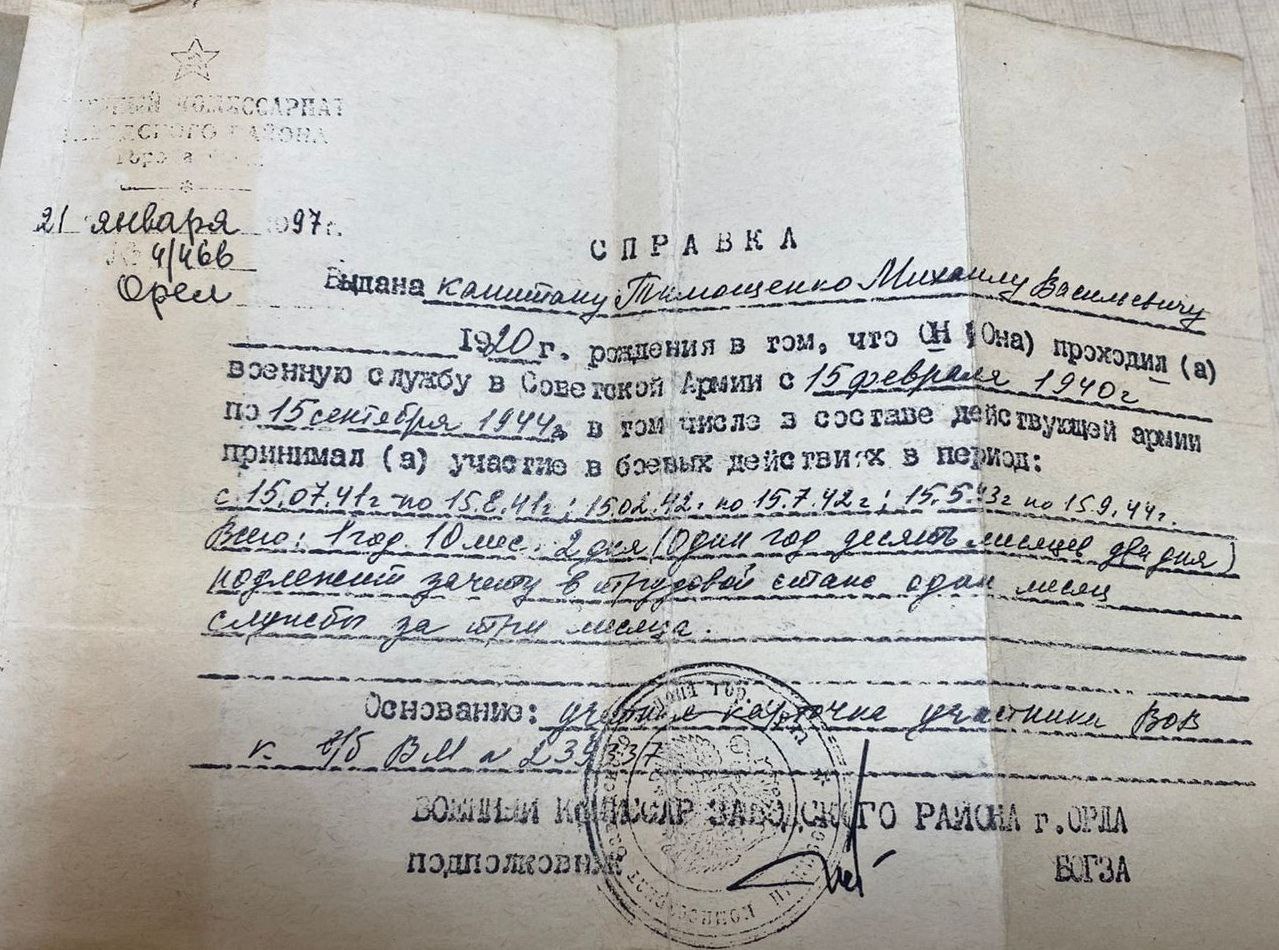 ВОЕННЫЙ КОМИССАРИАТ
ЗАВОДСКОГО РАЙОНА
города
21 января 1997г.
№ 4/466
Орел
СПРАВКА
Выдана капитану Тимощенко Михаилу Васильевичу
1920 г. рождения в том, что (Он, Она) проходил (а)
военную службу в Советской Армии с 15 февраля 1940г
по 15 сентября 1944г в том числе в составе действующей армии
принимал (а) участие в боевых действиях в период:
с 15.07.41г по 15.8.41г; 15.02.42г. по 15.7.42г; 15.5.43г по 15.9.44г.
Всего: 1 год. 10 мес. 2 дня (Один год десять месяцев два дня)
подлежит зачету в трудовой стаж один месяц
службы за три месяца.
Основание: учетная карточка участника ВОВ
к в/б ВМ № 239337
ВОЕННЫЙ КОМИССАР ЗАВОДСКОГО РАЙОНА г.ОРЛА
подполковник БОГЗА